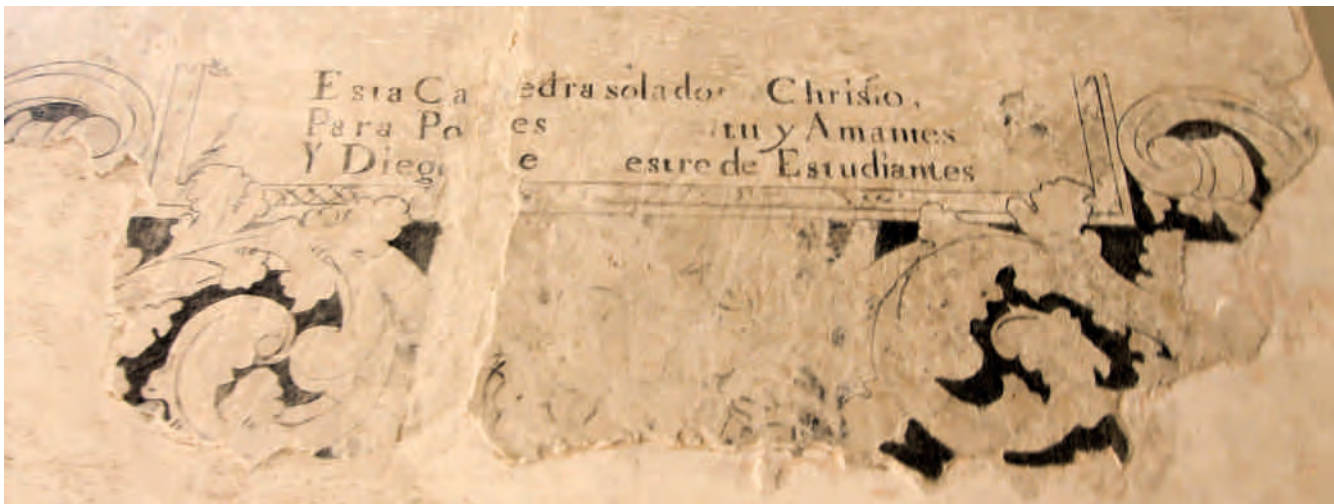 Esta Ca edra solo Christo,
Para Po es itu y Amantes
Y Dieg e estre de Estudiantes